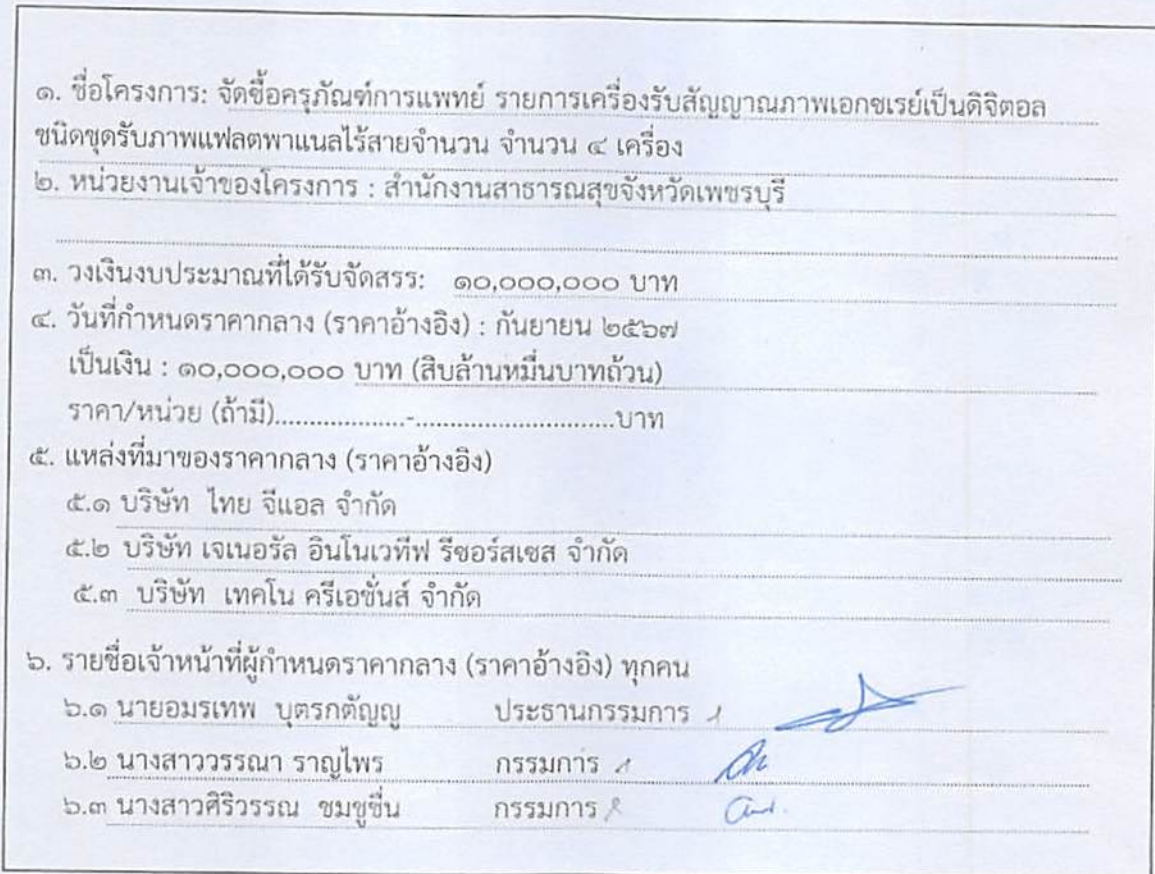 ๑. ชื่อโครงการ: จัดซื้อครุภัณฑ์การแพทย์ รายการเครื่องรับสัญญาณภาพเอกซเรย์เป็นดิจิตอล
ชนิดชุดรับภาพแฟลตพาแนลไร้สายจำนวน จำนวน ๔ เครื่อง
๒. หน่วยงานเจ้าของโครงการ : สำนักงานสาธารณสุขจังหวัดเพชรบุรี
๓. วงเงินงบประมาณที่ได้รับจัดสรร: ๑๐,๐๐๐,๐๐๐ บาท
๔. วันที่กำหนดราคากลาง (ราคาอ้างอิง) : กันยายน ๒๕๖๗
เป็นเงิน : ๑๐,๐๐๐,๐๐๐ บาท (สิบล้านหมื่นบาทถ้วน)
ราคา/หน่วย (ถ้ามี)..................-............................บาท
๕. แหล่งที่มาของราคากลาง (ราคาอ้างอิง)
๕.๑ บริษัท ไทย จีแอล จำกัด
๕.๒ บริษัท เจเนอรัล อินโนเวทีฟ รีซอร์สเซส จำกัด
๕.๓ บริษัท เทคโน ครีเอชั่นส์ จำกัด
๖. รายชื่อเจ้าหน้าที่ผู้กำหนดราคากลาง (ราคาอ้างอิง) ทุกคน
๖.๑ นายอมรเทพ บุตรกตัญญู ประธานกรรมการ
๖.๒ นางสาววรรณา ราญไพร กรรมการ
๖.๓ นางสาวศิริวรรณ ชมชูชื่น กรรมการ